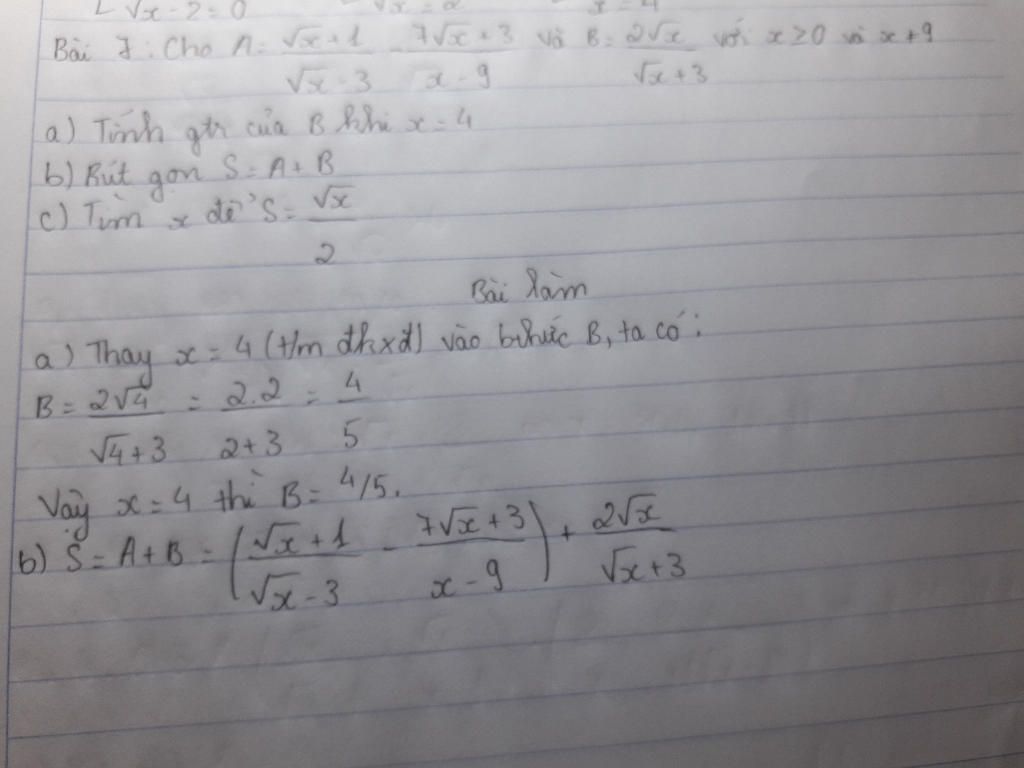 √x - 2 = 0 √x = 2 x = 4
Bài 7: Cho A = (√x + 1)/(√x - 3) - (7√x + 3)/(x - 9) và B = 2√x/(√x + 3) với x ≥ 0 và x ≠ 9
a) Tính gtr của B khi x = 4
b) Rút gọn S = A + B
c) Tìm x để S = √x/2
Bài làm
a) Thay x = 4 (t/m đkxđ) vào bthức B, ta có:
B = 2√4/(√4 + 3) = 2.2/(2 + 3) = 4/5
Vậy x = 4 thì B = 4/5.
b) S = A + B = ((√x + 1)/(√x - 3) - (7√x + 3)/(x - 9)) + 2√x/(√x + 3)